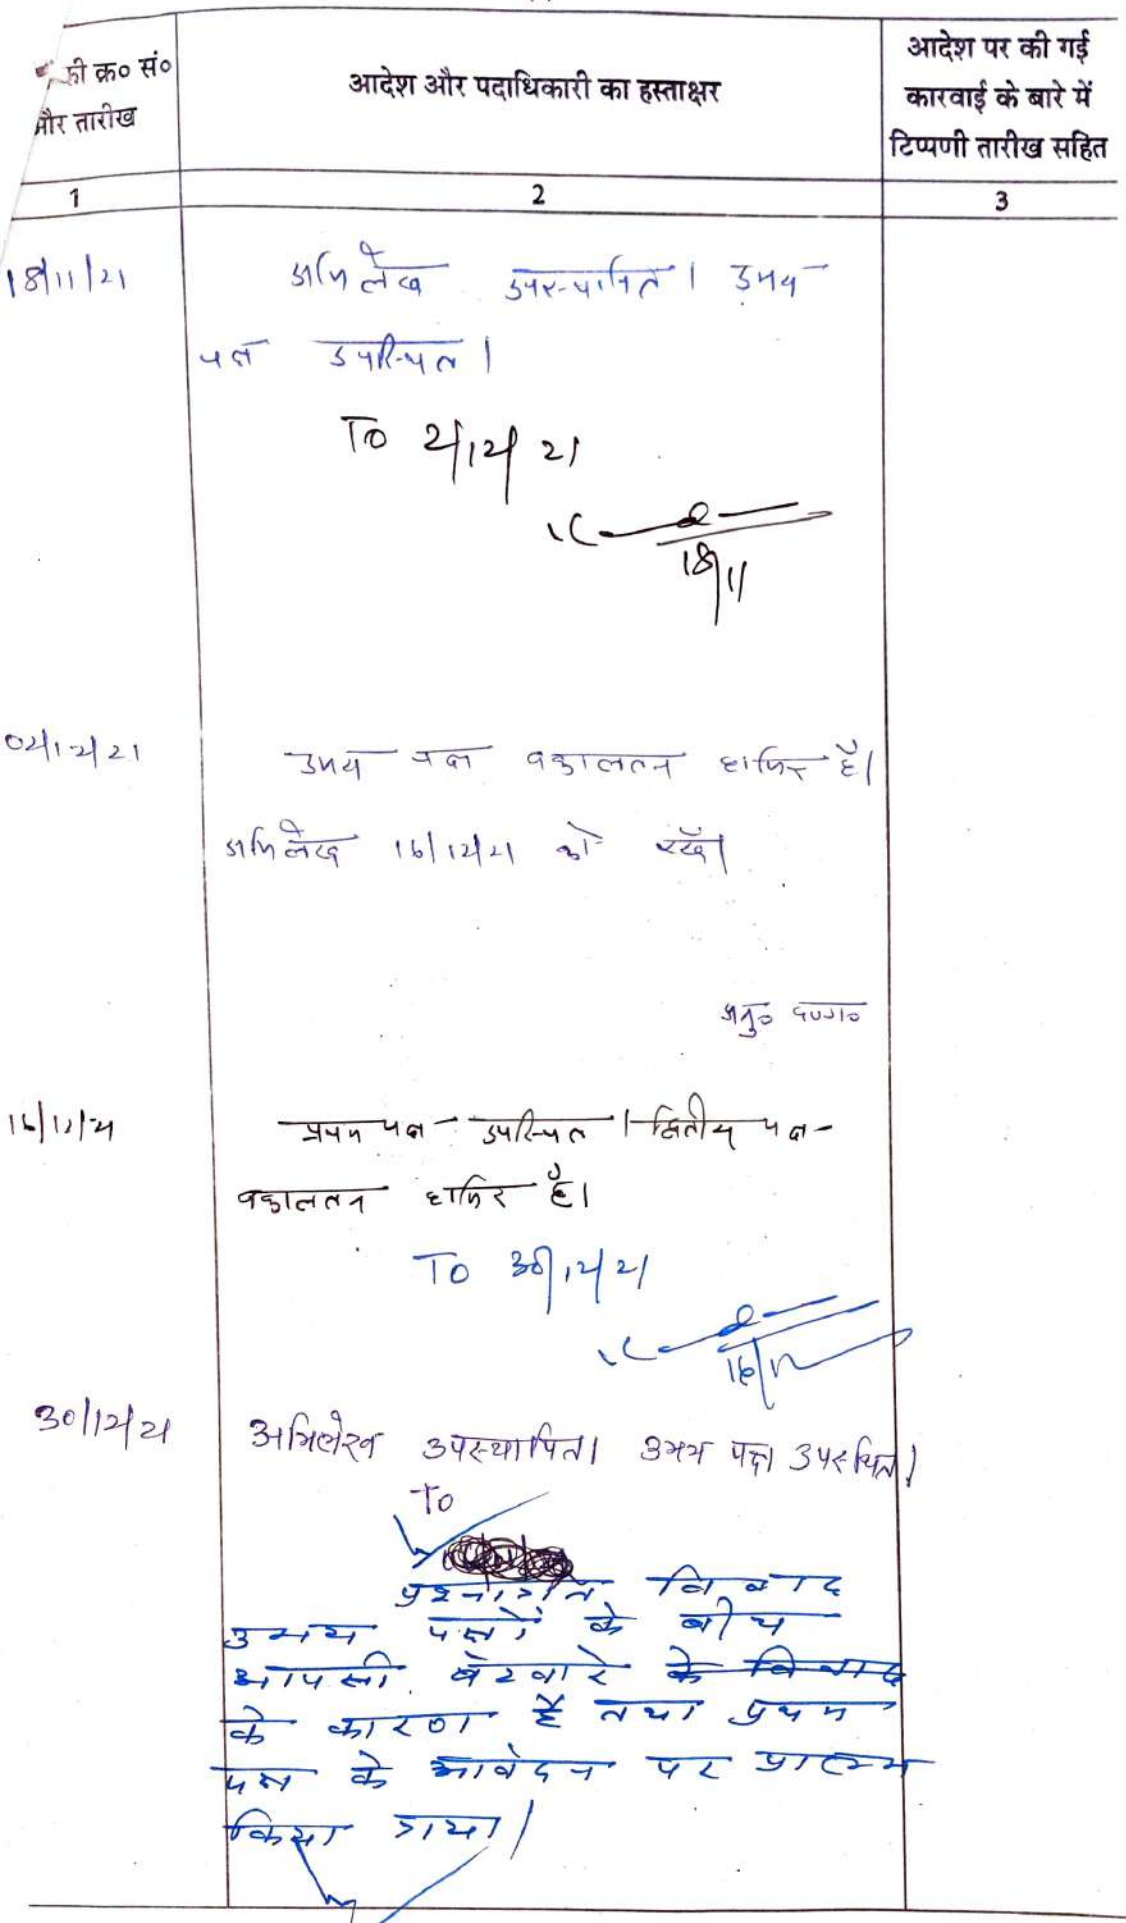 की क्र० सं०
और तारीख
आदेश और पदाधिकारी का हस्ताक्षर
आदेश पर की गई
कारवाई के बारे में
टिप्पणी तारीख सहित
1 2 3
18/11/21 अभिलेख उपस्थापित। उभय
पक्ष उपस्थित।
To 2/12/21
18/11
02/12/21 उभय पक्ष वकालतन हाजिर है।
अभिलेख 16/12/21 को रखें।
अनु० दण्डा०
16/12/21 प्रथम पक्ष उपस्थित। द्वितीय पक्ष
वकालतन हाजिर है।
To 30/12/21
16/12
30/12/21 अभिलेख उपस्थापित। उभय पक्ष उपस्थित।
To
प्रश्नागत विवाद
उभय पक्षों के बीच
आपसी बंटवारे के विवाद
के कारण है तथा प्रथम
पक्ष के आवेदन पर प्रारम्भ
किया गया।